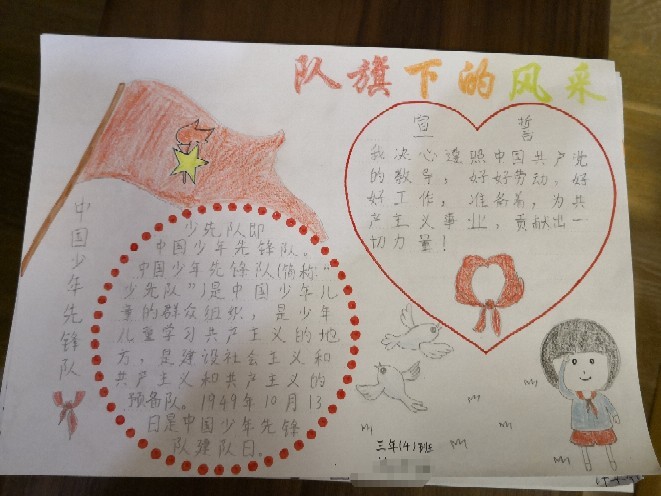 队旗下的风采
中国少年先锋队
少先队即
中国少年先锋队。
中国少年先锋队(简称“
少先队”)是中国少年儿
童的群众组织，是少年
儿童学习共产主义的地
方，是建设社会主义和
共产主义和共产主义的
预备队。1949年10月13
日是中国少年先锋
队建队日。
宣誓
我决心遵照中国共产党
的教导，好好劳动，好
好工作，准备着，为共
产主义事业，贡献出一
切力量！
三年(4)班